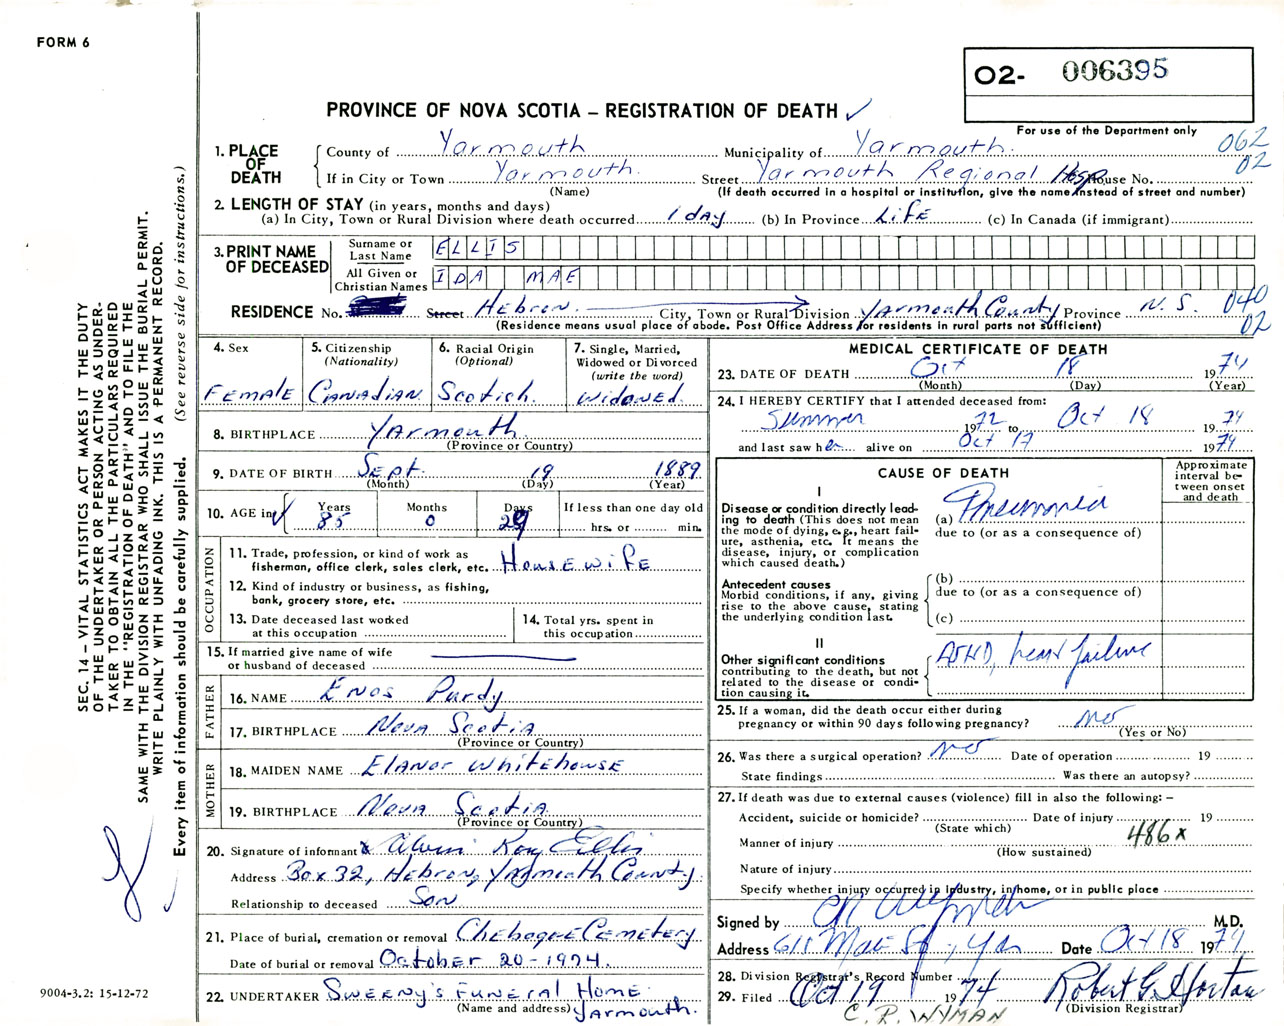 FORM 6
02- 006395
PROVINCE OF NOVA SCOTIA – REGISTRATION OF DEATH ✓
For use of the Department only
062
02
1. PLACE OF DEATH
County of Yarmouth Municipality of Yarmouth.
If in City or Town Yarmouth. Street Yarmouth Regional Hosp. House No.
(Name) (If death occurred in a hospital or institution, give the name instead of street and number)
2. LENGTH OF STAY (in years, months and days)
(a) In City, Town or Rural Division where death occurred 1 day (b) In Province Life (c) In Canada (if immigrant)
3. PRINT NAME OF DECEASED
Surname or Last Name ELLIS
All Given or Christian Names IDA MAE
RESIDENCE No. Street Hebron. City, Town or Rural Division Yarmouth County Province N.S. 040
02
(Residence means usual place of abode. Post Office Address for residents in rural parts not sufficient)
4. Sex
Female
5. Citizenship
(Nationality)
Canadian
6. Racial Origin
(Optional)
Scotish.
7. Single, Married, Widowed or Divorced
(write the word)
Widowed
8. BIRTHPLACE Yarmouth.
(Province or Country)
9. DATE OF BIRTH Sept. 19 1889
(Month) (Day) (Year)
10. AGE in ✓ Years Months Days If less than one day old
85 0 29 hrs. or min.
OCCUPATION
11. Trade, profession, or kind of work as
fisherman, office clerk, sales clerk, etc. Housewife
12. Kind of industry or business, as fishing,
bank, grocery store, etc.
13. Date deceased last worked
at this occupation
14. Total yrs. spent in
this occupation
15. If married give name of wife
or husband of deceased
FATHER
16. NAME Enos Purdy
17. BIRTHPLACE Nova Scotia
(Province or Country)
MOTHER
18. MAIDEN NAME Elanor Whitehouse
19. BIRTHPLACE Nova Scotia
(Province or Country)
20. Signature of informant x Alvin Roy Ellis
Address Box 32, Hebron, Yarmouth County.
Relationship to deceased Son
21. Place of burial, cremation or removal Cheboque Cemetery.
Date of burial or removal October 20-1974.
22. UNDERTAKER Sweeny's Funeral Home.
(Name and address) Yarmouth.
MEDICAL CERTIFICATE OF DEATH
23. DATE OF DEATH Oct 18 1974
(Month) (Day) (Year)
24. I HEREBY CERTIFY that I attended deceased from:
Summer 1972 to Oct 18 1974
and last saw her alive on Oct 17 1974
CAUSE OF DEATH
Approximate interval between onset and death
I
Disease or condition directly leading to death (This does not mean the mode of dying, e.g., heart failure, asthenia, etc. It means the disease, injury, or complication which caused death.)
(a) Pneumonia
due to (or as a consequence of)
Antecedent causes
Morbid conditions, if any, giving rise to the above cause, stating the underlying condition last.
(b)
due to (or as a consequence of)
(c)
II
Other significant conditions
contributing to the death, but not related to the disease or condition causing it.
ASHD, heart failure
25. If a woman, did the death occur either during
pregnancy or within 90 days following pregnancy? no
(Yes or No)
26. Was there a surgical operation? no Date of operation 19
State findings Was there an autopsy?
27. If death was due to external causes (violence) fill in also the following: –
Accident, suicide or homicide? Date of injury 19
(State which)
486x
Manner of injury
(How sustained)
Nature of injury
Specify whether injury occurred in Industry, in home, or in public place
Signed by M.D.
Address 611 Main St., Yar Date Oct 18 1974
28. Division Registrar's Record Number
29. Filed Oct 19 1974 Robert G. Horton
(Division Registrar)
C. R. WYMAN
SEC. 14 – VITAL STATISTICS ACT MAKES IT THE DUTY
OF THE UNDERTAKER OR PERSON ACTING AS UNDER-
TAKER TO OBTAIN ALL THE PARTICULARS REQUIRED
IN THE "REGISTRATION OF DEATH" AND TO FILE THE
SAME WITH THE DIVISION REGISTRAR WHO SHALL ISSUE THE BURIAL PERMIT.
WRITE PLAINLY WITH UNFADING INK. THIS IS A PERMANENT RECORD.
Every item of information should be carefully supplied. (See reverse side for instructions.)
9004-3.2: 15-12-72